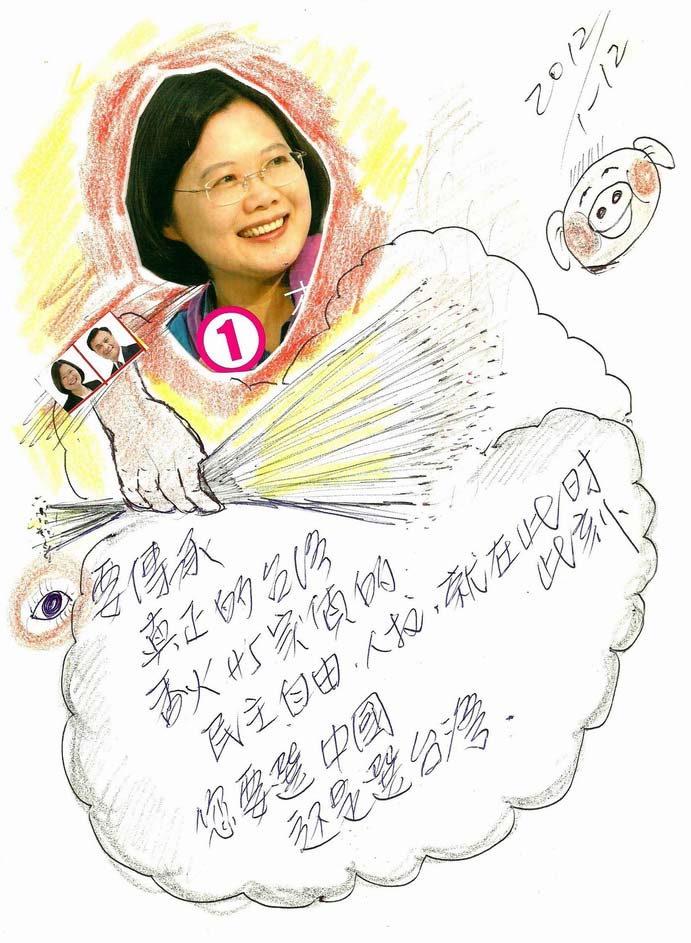 2012/
1-12
1
要傳承
真正的台灣
香火與家價的
民主.自由.人权.就在此时
此刻.
您要選中國
还是選台湾.